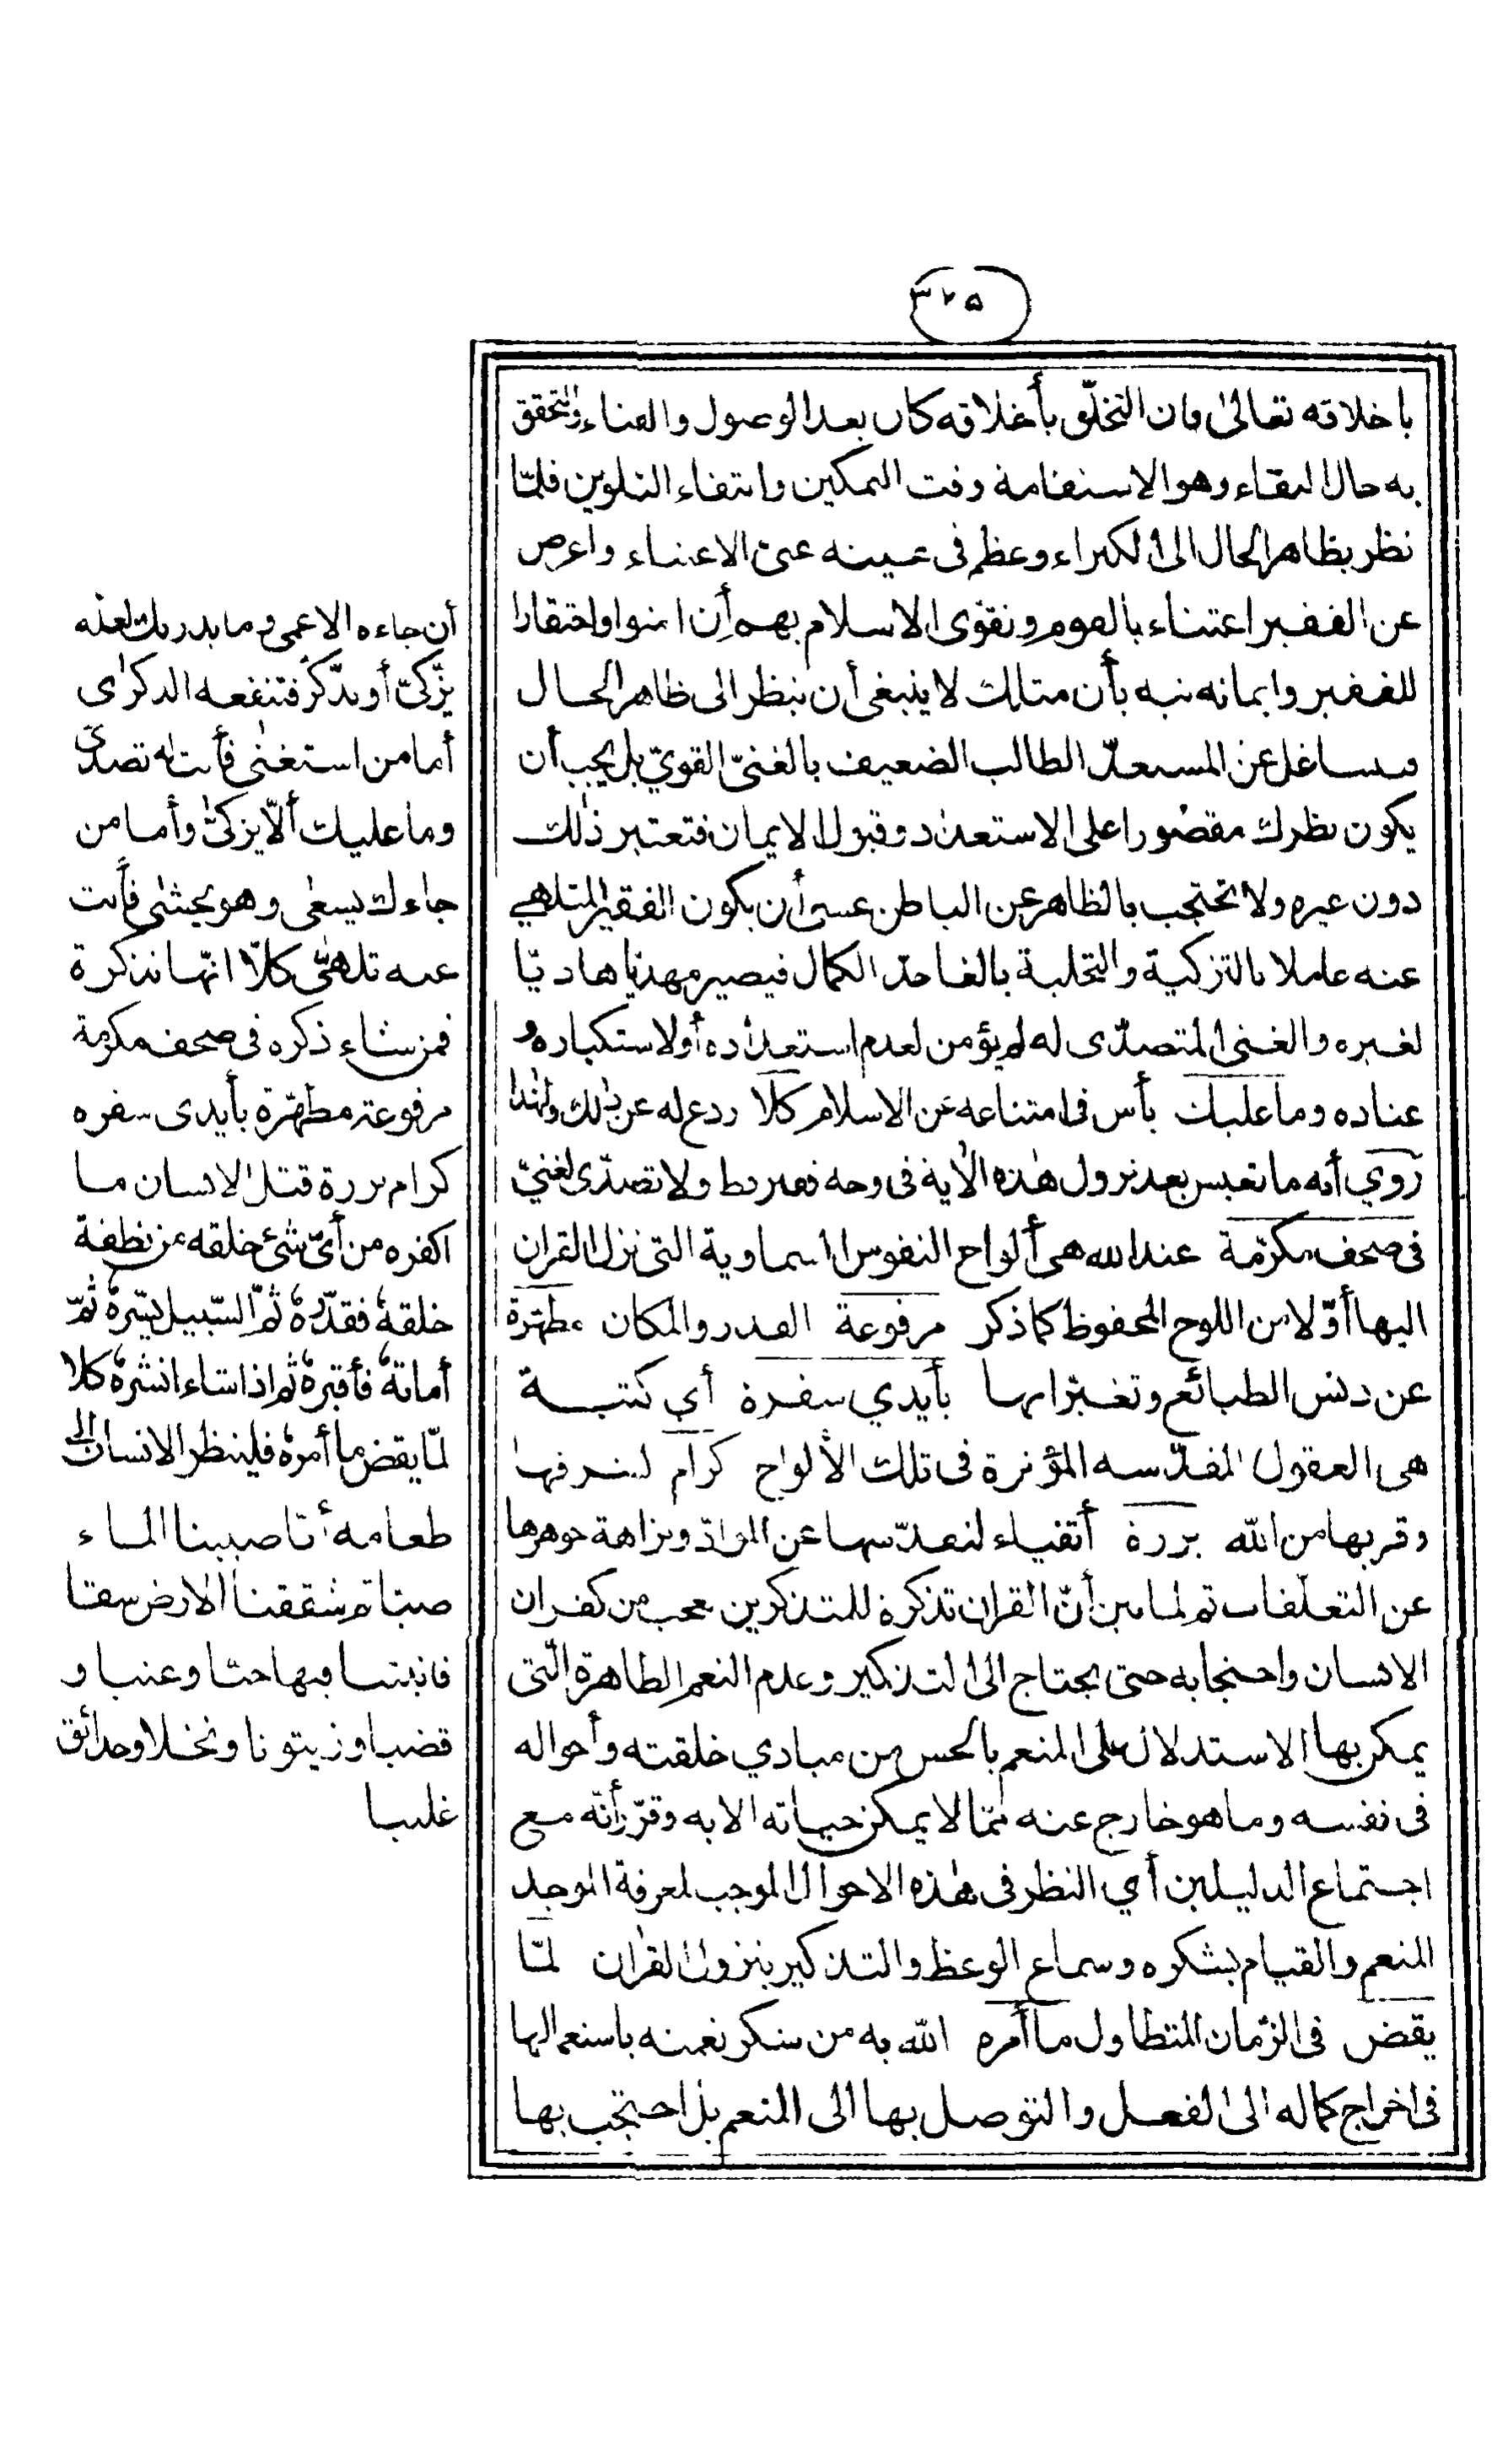 ٣٢٥
باخلاقه تعالىٰ فان التخلّق بأخلاقه كان بعد الوصول والفناء والتحقق
به حال البقاء وهو الاستقامة وقت التمكين وانتفاء التلوين فلمّا
نظر بظاهر الحال الى الكبراء وعظم فى عينه غنى الاغنياء واعرض
عن الفقير اعتناء بالقوم وتقوّى الاسلام بهم أن امنوا واحتقارا
للفقير وايمانه نبه بأن مثلك لا ينبغى أن ينظر الى ظاهر الحال
ويشاغل عن المستعدّ الطالب الضعيف بالغنىّ القوىّ بل يجب أن
يكون نظرك مقصورا على الاستعداد وقبول الايمان فتعتبر ذٰلك
دون غيره ولا تحتجب بالظاهر عن الباطن عسىٰ أن يكون الفقير المتلهي
عنه عاملا بالتزكية والتحلية بالغا حدّ الكمال فيصير مهديّا هاديّا
لغيره والغنى المتصدّى له لم يؤمن لعدم استعداده أو لاستكباره و
عناده وما عليك بأس فى امتناعه عن الاسلام كلا ردع له عن ذٰلك ولهٰذا
رُوي أنه ما تعبس بعد نزول هٰذه الأية فى وجه فقير قط ولا تصدّى لغنيّ
فى صحف مكرّمة عند الله هى ألواح النفوس السماوية التى نزل القران
اليها أوّلا من اللوح المحفوظ كما ذكر مرفوعة القدر والمكان مطهّرة
عن دنس الطبائع وتغيّراتها بأيدي سفرة أي كتبة
هى العقول المقدّسه المؤثرة فى تلك الألواح كرام لشرفها
وقربها من الله بررة أتقياء لتقدّسها عن الموادّ ونزاهة جوهرها
عن التعلّقات ثم لما بين أنّ القران تذكرة للمتذكرين عجب من كفران
الانسان واحتجابه حتى يحتاج الى التذكير وعدم النعم الظاهرة الّتى
يمكن بها الاستدلال على المنعم بالحس من مبادي خلقته وأحواله
فى نفسه وما هو خارج عنه ممّا لا يمكن حياته الا به وقرّر أنّه مع
اجتماع الدليلين أي النظر فى هٰذه الاحوال الموجب لمعرفة الموجد
المنعم والقيام بشكره وسماع الوعظ والتذكير بنزول القراٰن لمّا
يقض فى الزمان المتطاول ما أمره الله به من شكر نعمته باستعمالها
فى اخراج كماله الى الفعل والتوصل بها الى المنعم بل احتجب بها
أن جاءه الاعمى وما يدريك لعله
يزّكّىٰ أو يذّكّر فتنفعه الذكرٰى
أما من استغنٰى فأنت له تصدّى
وما عليك ألّا يزكّىٰ وأما من
جاءك يسعٰى وهو يخشٰى فأنت
عنه تلهّٰى كلّا انّها تذكرة
فمن شاء ذكره فى صحف مكرمة
مرفوعة مطهّرة بأيدى سفره
كرام بررة قتل الانسان ما
اكفره من أىّ شئ خلقه من نطفة
خلقهُ فقدّرهُ ثمّ السّبيل يسّرهُ ثمّ
أماتهُ فأقبرهُ ثم اذا شاء انشرهُ كلا
لمّا يقض ما أمرهُ فلينظر الانسان الى
طعامه أنّا صببنا الماء
صبّا ثم شققنا الارض شقا
فانبتنا فيها حبّا وعنبا و
قضبا وزيتونا ونخلا وحدائق
غلبا